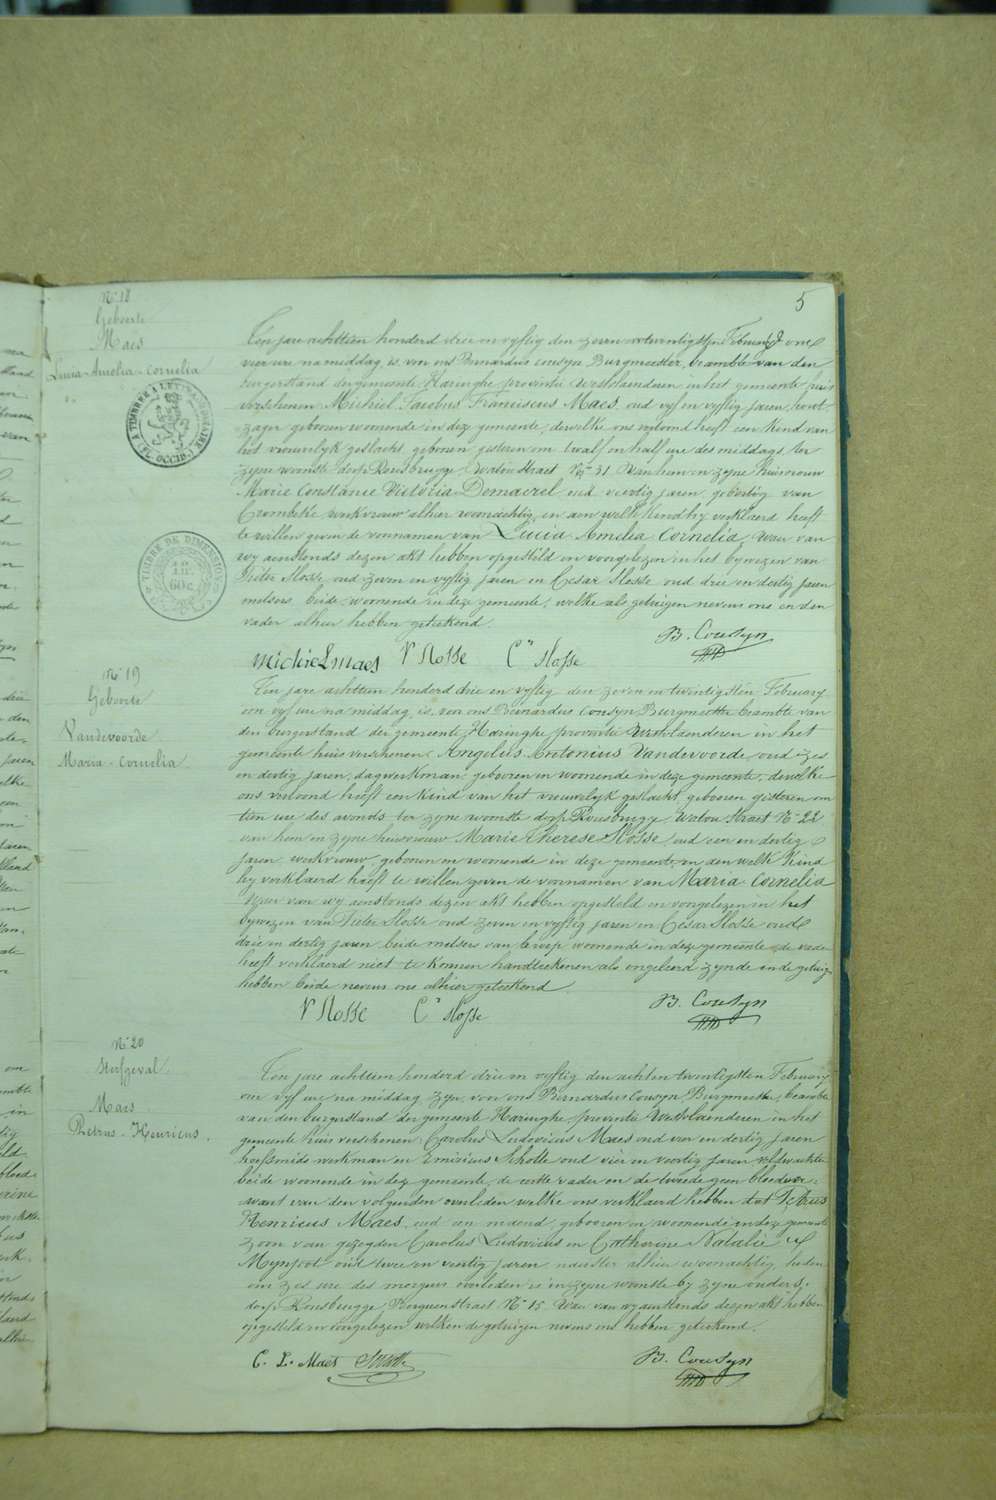 5
N° 18
Geboorte
Maes
Lucia-Amelia-Cornelia
Ten jare achttien honderd drie en vyftig den zeven en twintigsten February om
vier ure na middag, is, voor ons Bernardus Cousyn Burgmeester, beambte van den
burgerstand der gemeente Haringhe provintie Westvlaenderen in het gemeente huis
verschenen Michiel Jacobus Franciscus Maes, oud vyf en vyftig jaren,
geboren woonende in deze gemeente, dewelke ons vertoond heeft een kind van
het vrouwelyk geslacht, geboren gisteren om twaelf en half ure des middags, ter
zyne woonste dorp Rousbrugge, Watou straet N° 31 Van hem en zyne huisvrouw
Marie Constance Victoria Demacrel oud veertig jaren, geboortig van
Crombeke, werkvrouw alhier woonachtig, en aen welk kind hy verklaerd heeft
te willen geven de voornamen van Lucia Amelia Cornelia, Waer van
wy aenstonds dezen akt hebben opgesteld en voorgelezen in het bywezen van
Pieter Slosse, oud zeven en vyftig jaren en Cesar Slosse oud drie en dertig jaren
metsers beide woonende in deze gemeente, welke als getuigen nevens ons en den
vader alhier hebben geteekend.
TIMBRE A L'EXTRAORDINAIRE
(FL. OCCID.)
TIMBRE DE DIMENSION
60 c
B. Cousyn
Michiel Maes P Slosse Cr Slosse
N° 19
Geboorte
Vandevoorde
Maria-Cornelia
Ten jare achttien honderd drie en vyftig den zeven en twintigsten February
om vyf ure na middag, is, voor ons Bernardus Cousyn Burgmeester beambte van
den burgerstand der gemeente Haringhe provintie Westvlaenderen in het
gemeente huis verschenen Angelus Antonius Vandevoorde, oud zes
en dertig jaren, dagwerkman geboren en woonende in deze gemeente, dewelke
ons vertoond heeft een kind van het vrouwelyk geslacht geboren gisteren om
tien ure des avonds ter zyne woonste dorp Rousbrugge Watou straet N° 22
van hem en zyne huisvrouw Marie Therese Slosse, oud een en dertig
jaren, werkvrouw, geboren en woonende in deze gemeente en aen welk kind
hy verklaerd heeft te willen geven de voornamen van Maria Cornelia
Waer van wy aenstonds dezen akt hebben opgesteld en voorgelezen in het
bywezen van Pieter Slosse oud zeven en vyftig jaren en Cesar Slosse oud
drie en dertig jaren beide metsers van beroep woonende in deze gemeente de vader
heeft verklaerd niet te konnen handteekenen als ongeleerd zynde en de getuigen
hebben beide nevens ons alhier geteekend
P Slosse Cr Slosse B. Cousyn
N° 20
Sterfgeval
Maes
Petrus-Henricus.
Ten jare achttien honderd drie en vyftig den acht en twintigsten February
om vyf ure na middag zyn, voor ons Bernardus Cousyn Burgmeester, beambte
van den burgerstand der gemeente Haringhe provintie Westvlaenderen in het
gemeente huis verschenen Carolus Ludovicus Maes oud vier en dertig jaren
hoefsmids werkman en Emiricus Scholle oud vier en veertig jaren veldwachter
beide woonende in deze gemeente, de eerste vader en de tweede geen bloedver-
want van den volgenden overleden welke ons verklaerd hebben dat Petrus
Henricus Maes, oud een maend, geboren en woonende in deze gemeente
zoon van gezegden Carolus Ludovicus en Catherine Natalie
Mynfoot oud twee en veertig jaren naester alhier woonachtig heden
om zes ure des morgens overleden is in zyne woonste by zyne ouders,
dorp Rousbrugge, Berguenstraet N° 15. Waer van wy aenstonds dezen akt hebben
opgesteld en voorgelezen welken de getuigen nevens ons hebben geteekend.
C. L. Maes B. Cousyn